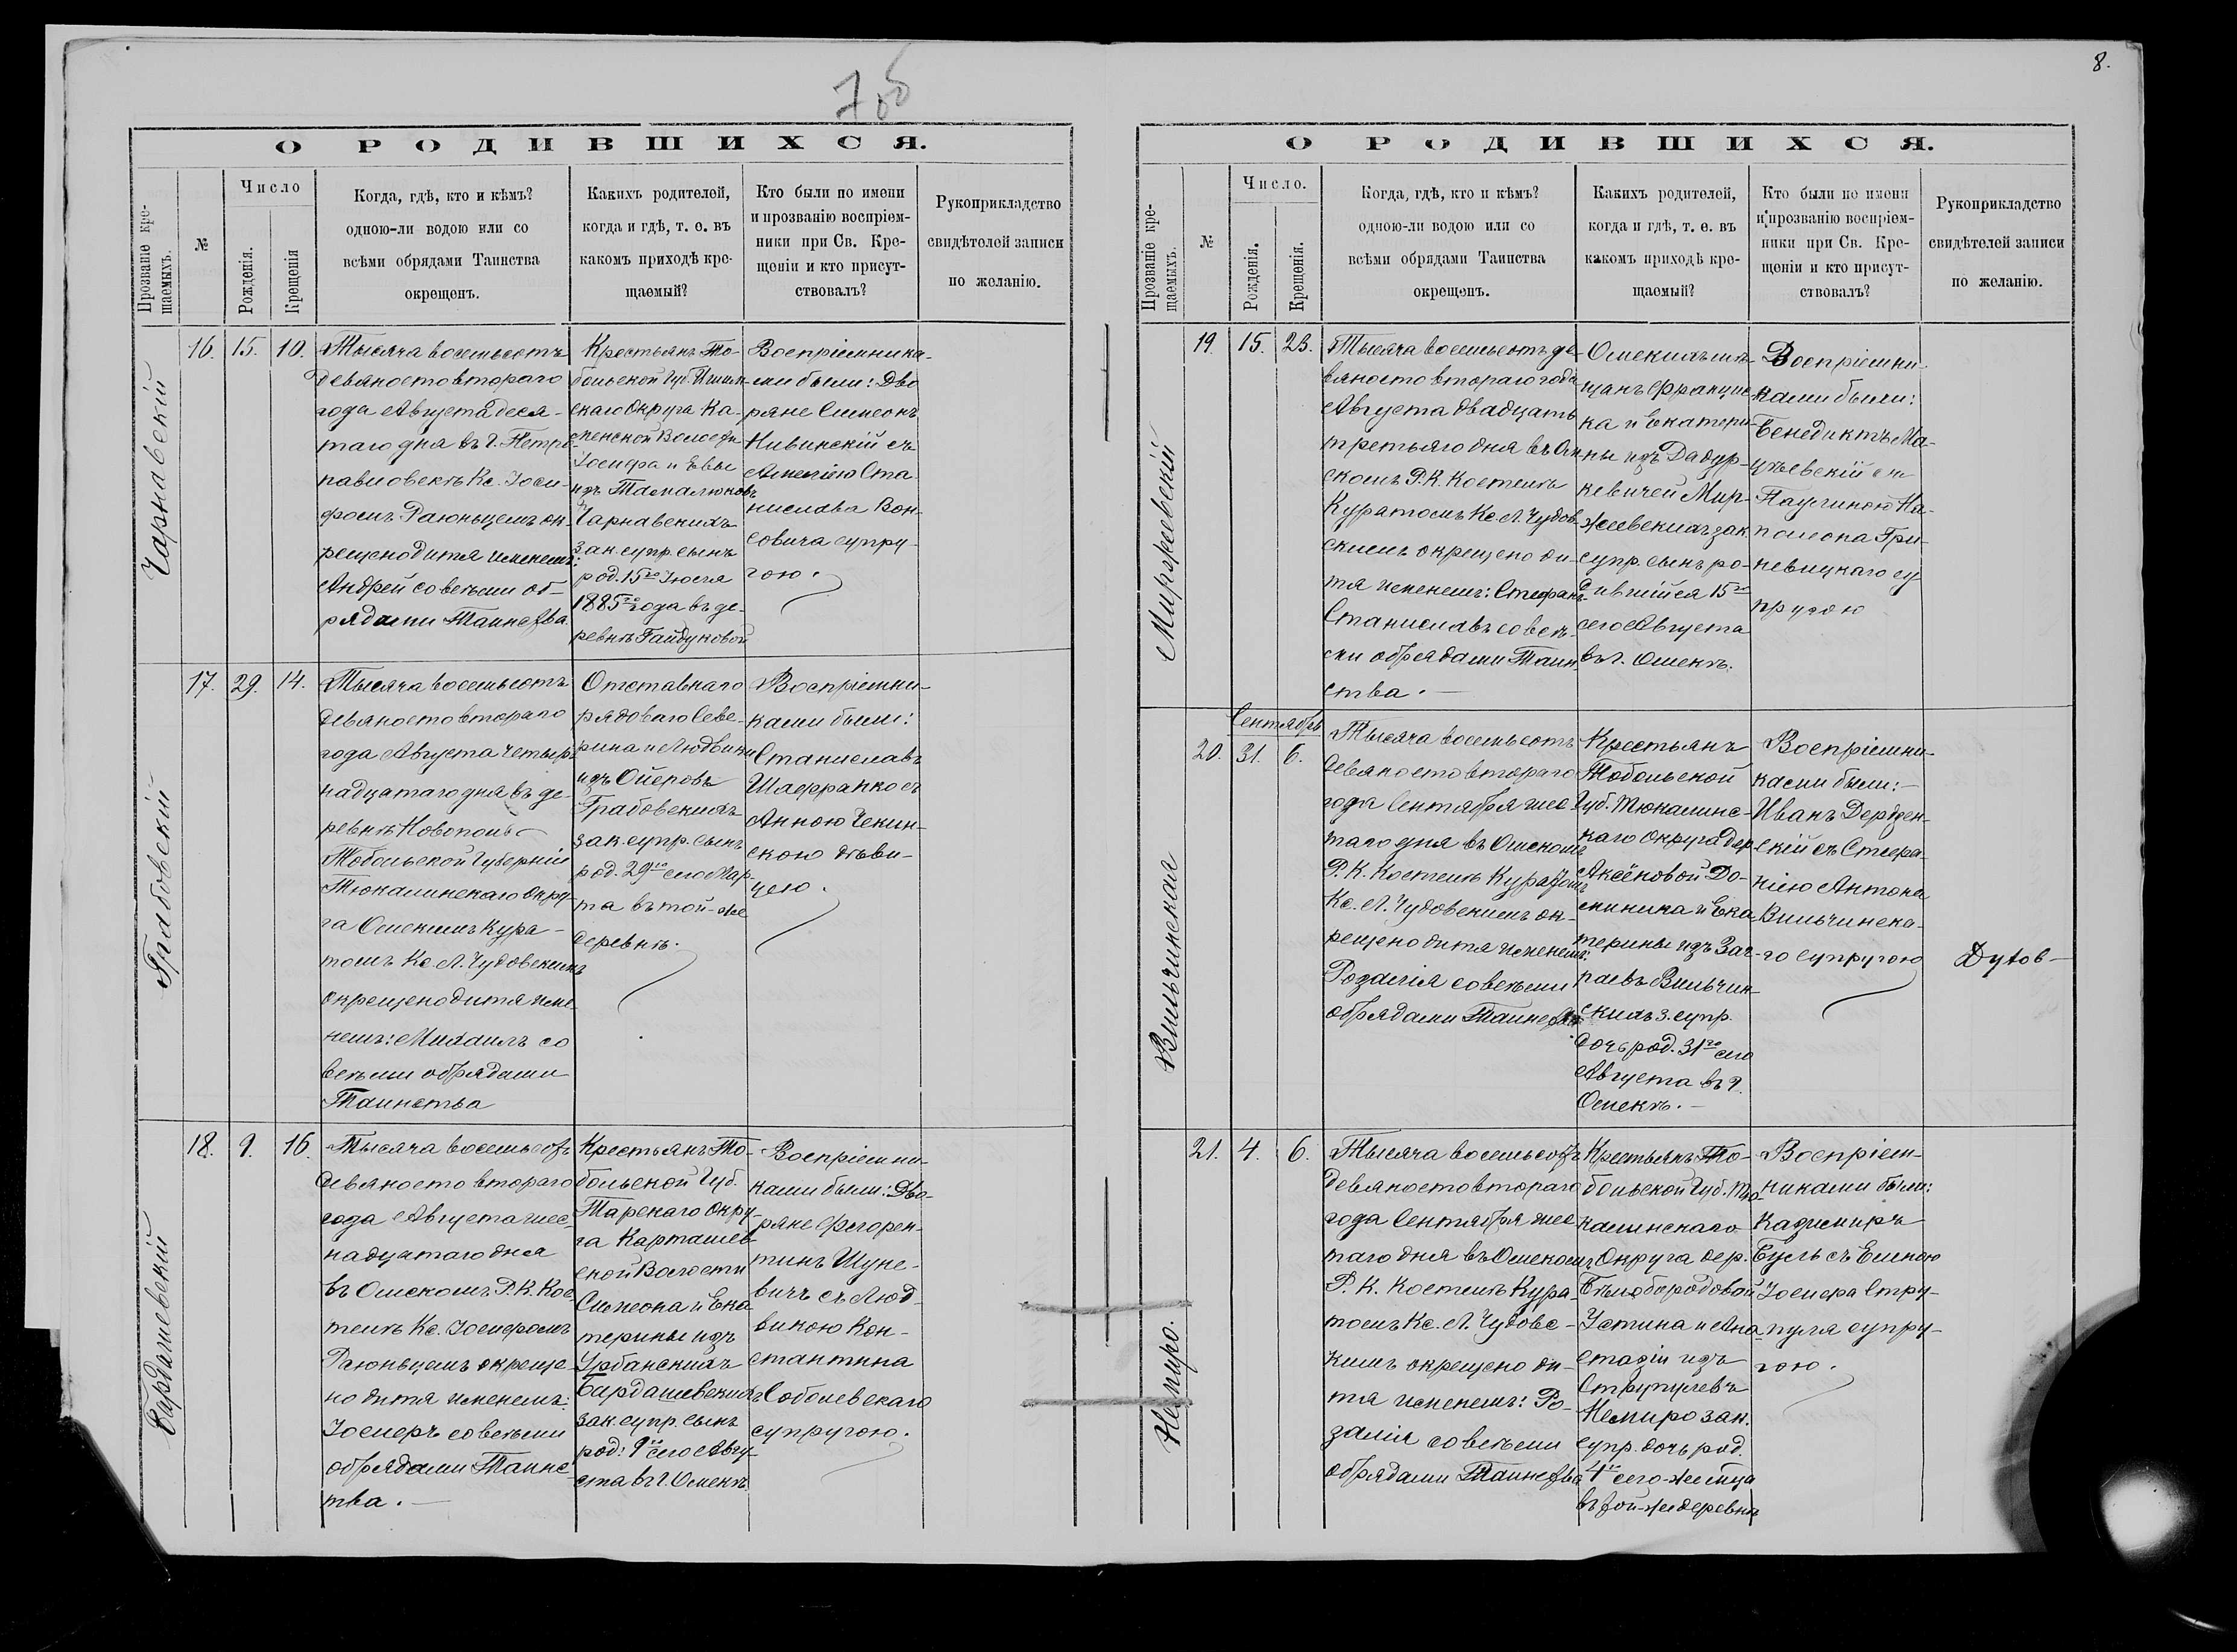 7 об
О РОДИВШИХСЯ.
Прозваніе крещаемыхъ.
№
Число
Рожденія.
Крещенія
Когда, гдѣ, кто и кѣмъ?
одною-ли водою или со
всѣми обрядами Таинства
окрещенъ.
Какихъ родителей,
когда и гдѣ, т. е. въ
какомъ приходѣ кре-
щаемый?
Кто были по имени
и прозванію воспріем-
ники при Св. Кре-
щеніи и кто присут-
ствовалъ?
Рукоприкладство
свидѣтелей записи
по желанію.
Чарнавскій
16. 15. 10.
Тысяча восемьсотъ
девяносто втораго
года Августа деся-
таго дня въ г. Петро-
павловскѣ Кс. Іоси-
фомъ Раюньцемъ ок-
рещено дитя именемъ:
Андрей со всѣми об-
рядами Таинства.
Крестьянъ То-
больской Губ. Ишим-
скаго Округа Ка-
менской Волости
Іосифа и Евы
изъ
Чарнавскихъ
зак. супр. сынъ
род. 15го Іюля
1885го года въ де-
ревнѣ Гайдуковой
Воспріемника-
ми были: Дво
ряне Симеонъ
Нивинскій съ
Амелію Ста
нислава Вон-
совича супру-
гою.
Грабовскій
17. 29. 14.
Тысяча восемьсотъ
девяносто втораго
года Августа четыр-
надцатаго дня въ де-
ревнѣ Новополь
Тобольской Губерніи
Тюкалинскаго Окру-
га Омскимъ Кура-
томъ Кс. Л. Чудовскимъ
окрещено дитя име
немъ: Михаилъ со
всѣми обрядами
Таинства
Отставнаго
рядоваго Севе-
рина и Людвики
изъ Ойеровъ
Грабовскихъ
зак. супр. сынъ
род. 29го сего Мар-
та въ той-же
деревнѣ.
Воспріемни-
ками были:
Станиславъ
Шафранко съ
Анною Чекин-
скою дѣви-
цею.
Бардашевскій
18. 9. 16.
Тысяча восемьсотъ
девяносто втораго
года Августа шес-
надцатаго дня
въ Омскомъ Р. К. Кос
телѣ Кс. Іосифомъ
Раюньцемъ окреще-
но дитя именемъ:
Іосифъ со всѣми
обрядами Таинс-
тва.
Крестьянъ То-
больской Губ.
Тарскаго Окру-
га Карташев
ской Волости
Симеона и Ека
терины изъ
Урбанскихъ
Бардашевскихъ
зак. супр. сынъ
род. 9го сего Авгу-
ста въ г. Омскѣ.
Воспріемни-
ками были: Дво-
ряне Флорен-
тинъ Шуне-
вичъ съ Люд-
викою Кон-
стантина
Соболевскаго
супругою.
8.
О РОДИВШИХСЯ.
Прозваніе крещаемыхъ.
№
Число.
Рожденія.
Крещенія.
Когда, гдѣ, кто и кѣмъ?
одною-ли водою или со
всѣми обрядами Таинства
окрещенъ.
Какихъ родителей,
когда и гдѣ, т. е. въ
какомъ приходѣ кре-
щаемый?
Кто были по имени
и прозванію воспріем-
ники при Св. Кре-
щеніи и кто присут-
ствовалъ?
Рукоприкладство
свидѣтелей записи
по желанію.
Миржеевскій
19. 15. 23.
Тысяча восемьсотъ де-
вяносто втораго года
Августа двадцать
третьяго дня въ Ом
скомъ Р. К. Костелѣ
Куратомъ Кс. Л. Чудов-
скимъ окрещено ди-
тя именемъ: Стефанъ-
Станиславъ со всѣ-
ми обрядами Таин-
ства.
Омскихъ мѣ-
щанъ Францис
ка и Екатери-
ны изъ Дадур-
кевичей Мир-
жеевскихъ зак.
супр. сынъ ро-
дившійся 15го
сего Августа
въ г. Омскѣ.
Воспріемни-
ками были:
Бенедиктъ Ма-
цѣевскій съ
Паулиною На-
полеона Гри-
невицкаго су
пругою
Вильчинская
Сентябрь
20. 31. 6.
Тысяча восемьсотъ
девяносто втораго
года Сентября шес-
таго дня въ Омскомъ
Р. К. Костелѣ Куратомъ
Кс. Л. Чудовскимъ ок-
рещено дитя именемъ:
Розалія со всѣми
обрядами Таинства
Крестьянъ
Тобольской
Губ. Тюкалинс-
каго Округа дер.
Аксёновой До-
миника и Ека
терины изъ
Вильчин-
скихъ з. супр.
дочь род. 31го сего
Августа въ г.
Омскѣ.
Воспріемни-
ками были:
Иванъ
съ Стефа-
ніею Антона
Вильчинска-
го супругою
Dytob
Немиро.
21. 4. 6.
Тысяча восемьсотъ
девяносто втораго
года Сентября шес
таго дня въ Омскомъ
Р. К. Костелѣ Кура-
томъ Кс. Л. Чудовс-
кимъ окрещено ди-
тя именемъ: Ро-
залія со всѣми
обрядами Таинства
Крестьянъ То-
больской Губ. Тю-
калинскаго
Округа дер.
Бѣлобородовой
Устина и Ана-
стазіи изъ
Струпулевъ
Немиро зак.
супр. дочь род.
4го сего-мѣсяца
въ той-же деревнѣ
Воспріем-
никами были:
Казимиръ
Буль съ Еленою
Іосифа Стру-
пуля супру-
гою.